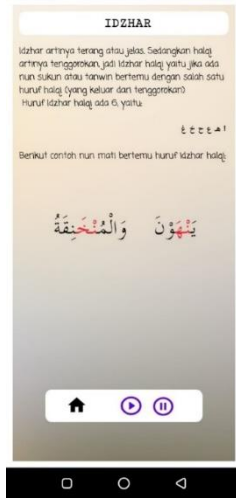 IDZHAR
Idzhar artinya terang atau jelas. Sedangkan halqi
artinya tenggorokan, jadi Idzhar halqi yaitu jika ada
nun sukun atau tanwin bertemu dengan salah satu
huruf halqi (yang keluar dari tenggorokan)
Huruf Idzhar halqi ada 6, yaitu:
ا ه ع ح خ غ
Berikut contoh nun mati bertemu huruf idzhar halqi:
يَنْهَوْنَ وَالْمُنْخَنِقَةُ